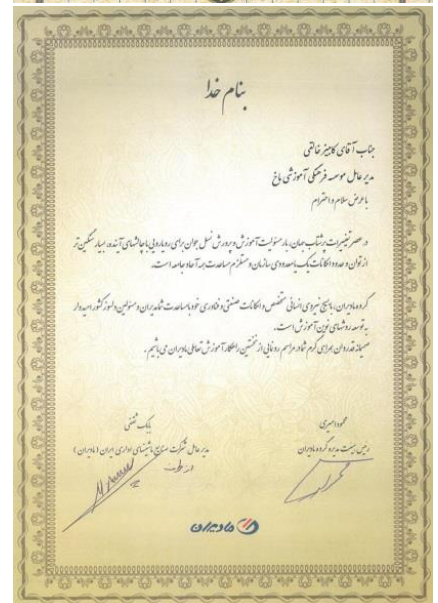 بنام خدا
جناب آقای کامبیز خالقی
مدیر عامل موسسه فرهنگی آموزشی باغ
با عرض سلام و احترام
در عصر تغییرات پرشتاب جهان، بار مسئولیت آموزش و پرورش نسل جوان برای رویارویی با چالشهای آینده، بسیار سنگین تر
از توان و حدود امکانات یک یا معدودی سازمان و مستلزم مساعدت همه آحاد جامعه است.
گروه مادیران، با بسیج نیروی انسانی متخصص و امکانات صنعتی و فناوری خود با مساعدت شما مدیران و مسئولین دلسوز کشور امیدوار
به توسعه روشهای نوین آموزش است.
صمیمانه قدردان همراهی گرم شما در مراسم رونمایی از نخستین راهکار آموزش تعاملی مادیران می باشیم.
محمود امیری
رئیس هیئت مدیره گروه مادیران
بابک
مدیر عامل شرکت صنایع ماشینهای اداری ایران (مادیران)
مادیران